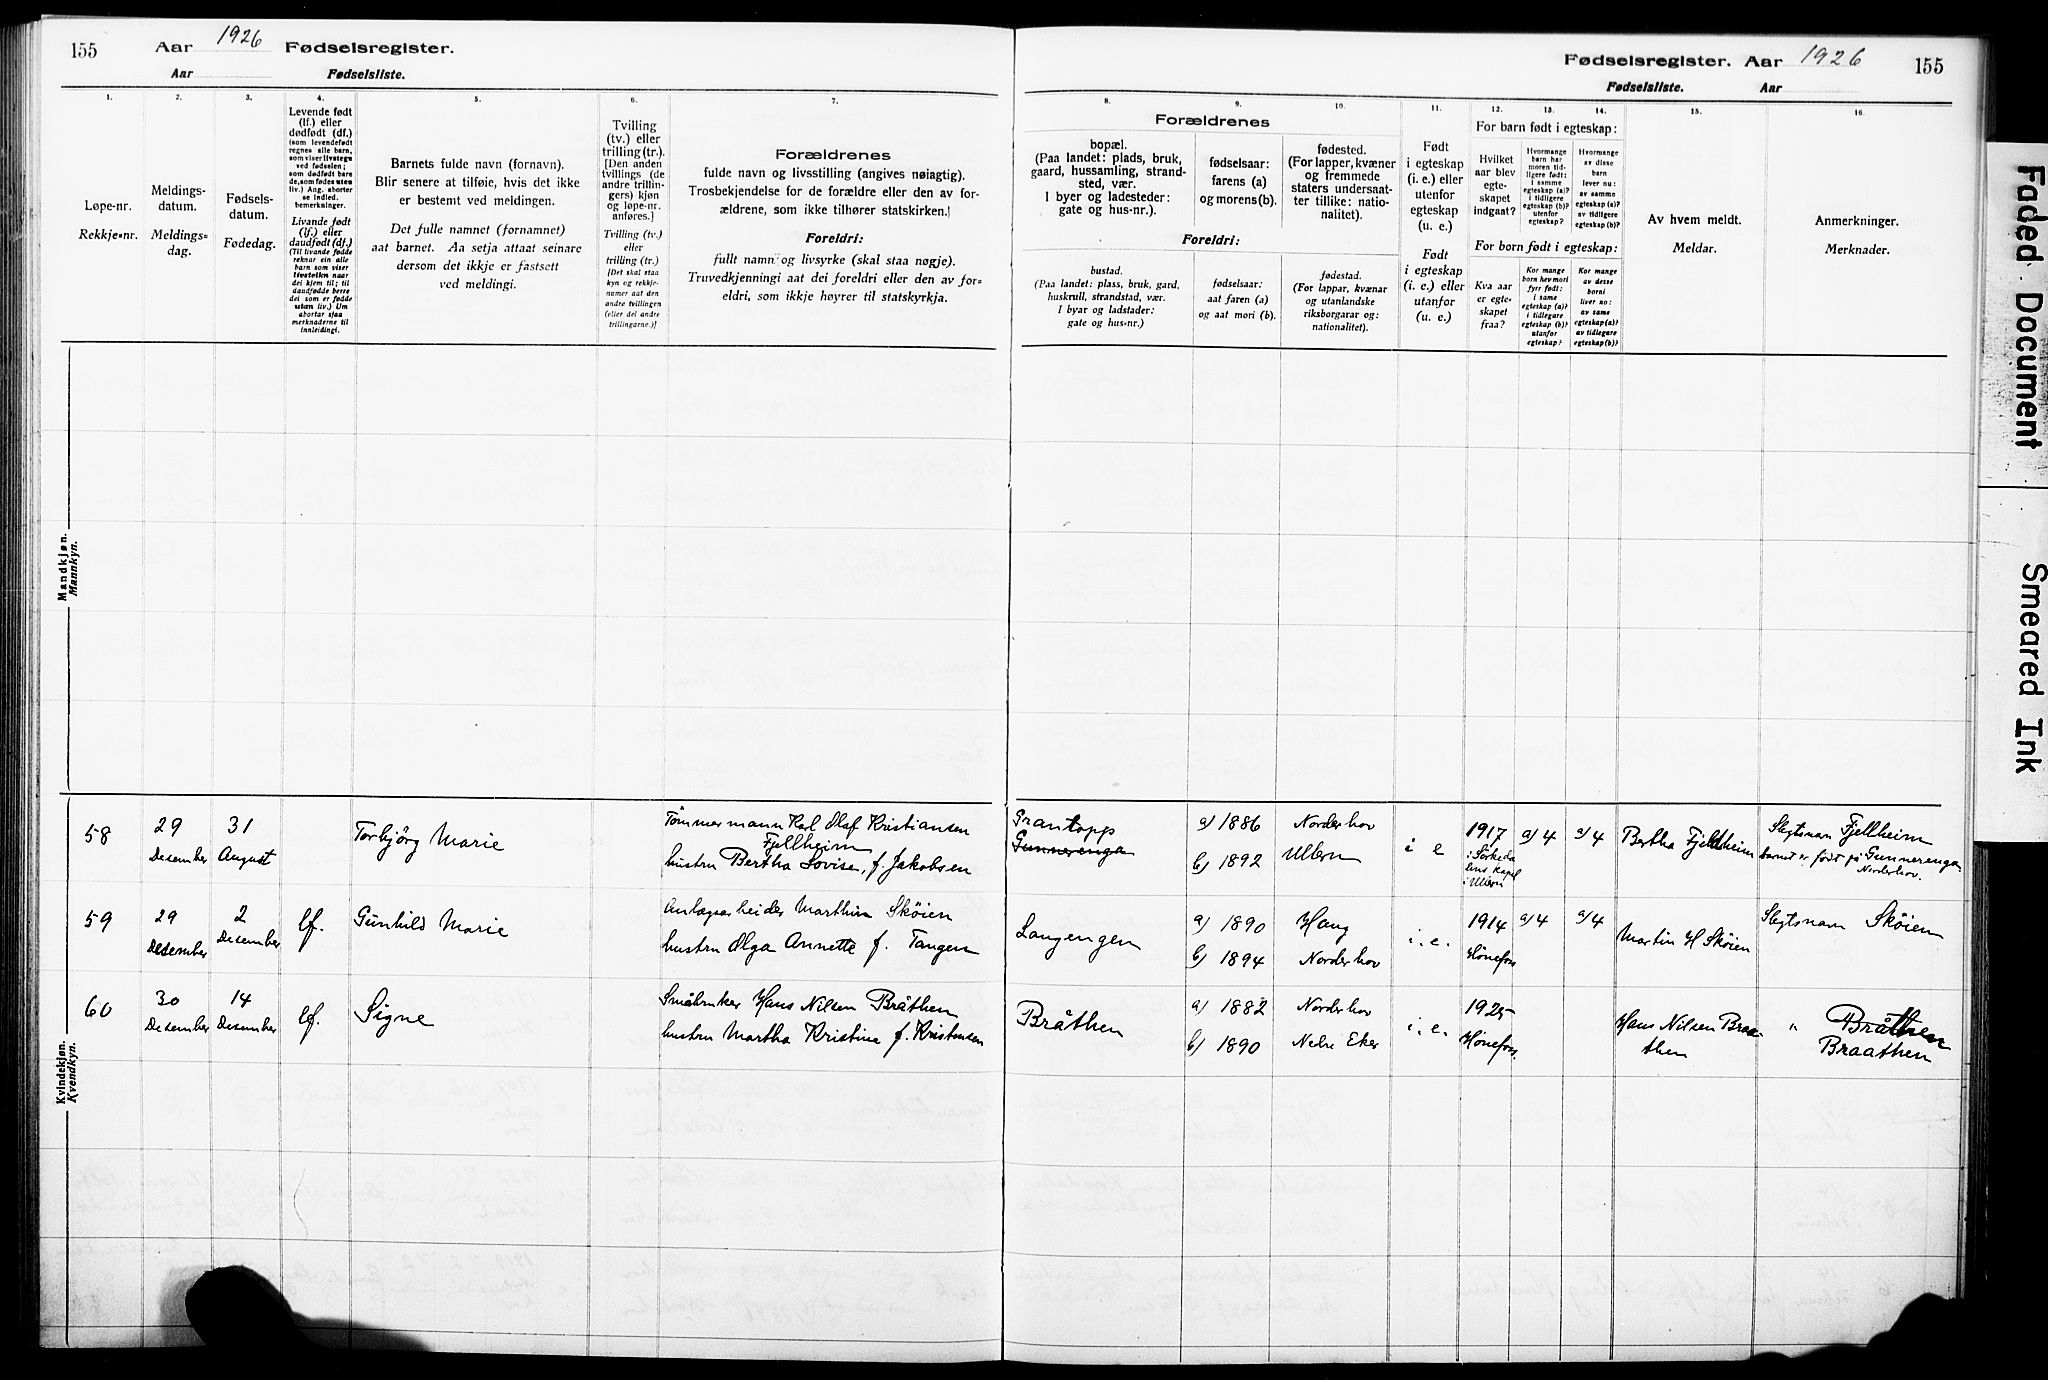 155
Aar 1926 Fødselsregister.
Aar Fødselsliste.
Fødselsregister. Aar 1926
155
Fødselsliste. Aar
1.
2.
3.
4.
5.
6.
7.
8.
9.
10.
11.
12.
13.
14.
15.
16.
Løpe-nr.
Rekkje=nr.
Meldings-
datum.
Meldings=
dag.
Fødsels-
datum.
Fødedag.
Levende født
(lf.) eller
dødfødt (df.)
(som levendefødt
regnes alle barn,
som viser livstegn
ved fødselen;
som dødfødt bare
de, som fødes uten
liv.) Ang. aborter
se indled.
bemerkninger.
Livande født
(lf.) eller
daudfødt (df.)
(Til livande fødde
reknar ein alle
barn som viser
livsteikn naar
dei kjem til; til
daudfødde berre
dei som er fødde
utan liv.) Um
abortar sjaa
merknaderne til
innleidingi.
Barnets fulde navn (fornavn).
Blir senere at tilføie, hvis det ikke
er bestemt ved meldingen.
Det fulle namnet (fornamnet)
aat barnet. Aa setja attaat seinare
dersom det ikkje er fastsett
ved meldingi.
Tvilling
(tv.) eller
trilling (tr.).
[Den anden
tvillings (de
andre trillin-
gers) kjøn
og løpe-nr.
anføres.]
Tvilling (tv.)
eller
trilling (tr.)
[Det skal staa
kyn og rekkje-
numer aat den
andre tvillingen
(eller dei andre
trillingarne.)]
Forældrenes
fulde navn og livsstilling (angives nøiagtig).
Trosbekjendelse for de forældre eller den av for-
ældrene, som ikke tilhører statskirken.
Foreldri:
fullt namn og livsyrke (skal staa nøgje).
Truvedkjenningi aat dei foreldri eller den av for=
eldri, som ikkje høyrer til statskyrkja.
Forældrenes
bopæl.
(Paa landet: plads, bruk,
gaard, hussamling, strand-
sted, vær.
I byer og ladesteder:
gate og hus-nr.).
fødselsaar:
farens (a)
og morens (b).
fødested.
(For lapper, kvæner
og fremmede
staters undersaat-
ter tillike: natio-
nalitet).
Foreldri:
bustad.
(Paa landet: plass, bruk, gard,
huskrull, strandstad, vær.
I byar og ladstader:
gate og hus=nr.)
fødselsaar:
aat faren (a)
og aat mori (b).
fødestad.
(For lappar, kvænar
og utanlandske
riksborgarar og:
nationalitet).
Født
i egteskap
(i. e.) eller
utenfor
egteskap
(u. e.)
Født
i egteskap
(i. e.) eller
utanfor
(u. e.)
For barn født i egteskap:
Hvilket
aar blev
egte-
skapet
indgaat?
Hvormange
barn har
moren tid-
ligere født:
i samme
egteskap (a)?
i tidligere
egteskap (b)?
utenfor
egteskap?
Hvormange
av disse
barn
lever nu:
av samme
egteskap (a)?
av tidligere
egteskap (b)?
For born født i egteskap:
Kva aar
er egte-
skapet
fraa?
Kor mange
born hev mori
fyrr født:
i same
egteskap (a)?
i tidlegare
egteskap (b)?
utanfor
egteskap?
Kor mange
av desse
borni
liver no:
av same
egteskap (a)?
av tidlegare
egteskap (b)?
Av hvem meldt.
Meldar.
Anmerkninger.
Merknader.
Mandkjøn.
Mannkyn.
Kvindekjøn.
Kvendkyn.
58
29
Desember
31
August
Torbjörg Marie
Tömmermann Karl Olaf Kristiansen
Fjellheim
hustru Bertha Lovise, f. Jakobsen
Grantopp
Gunnerenga
a) 1886
b) 1892
Norderhov
Ullern
i e
1917
i Sörkeda
lens kapel
i Ullern
a/4
a/4
Bertha Fjeldheim
Slegtsnavn Fjellheim
barnet er født på Gunnerenga
Norderhov.
59
29
Desember
2
Desember
lf.
Gunhild Marie
Anlægsarbeider Marthin Skøien
hustru Olga Annette f. Tangen
Langengen
a) 1890
b) 1894
Haug
Norderhov
i. e.
1914
Hönefos
a/4
a/4
Martin H Skøien
Slegtsnavn Skøien
60
30
Desember
14
Desember
lf.
Signe
Småbruker Hans Nilsen Bråthen
hustru Martha Kristine f. Kristensen
Bråthen
a) 1882
b) 1890
Norderhov
Nedre Eker
i. e.
1925
Hönefos.
Hans Nilsen Braa-
then
" Bråthen
Braathen
Faded Document
Smeared Ink